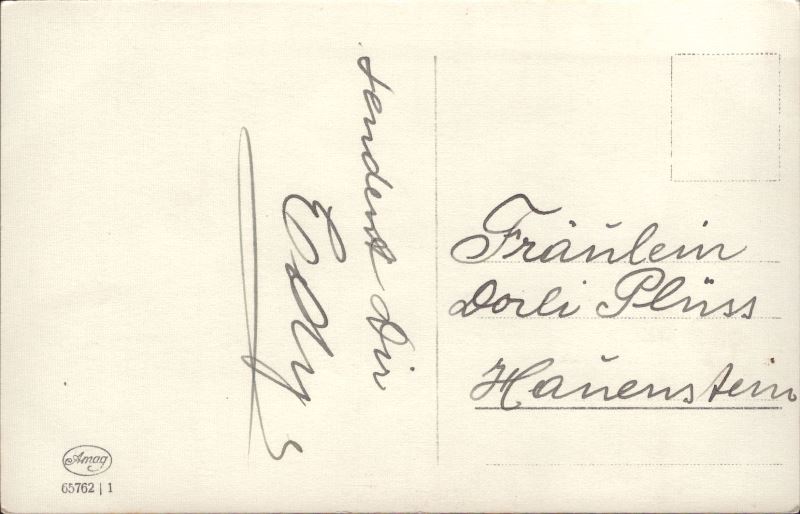 sendent Dir
Edy
Fräulein
Dorli Plüss
Hauenstein
Amag
65762 | 1